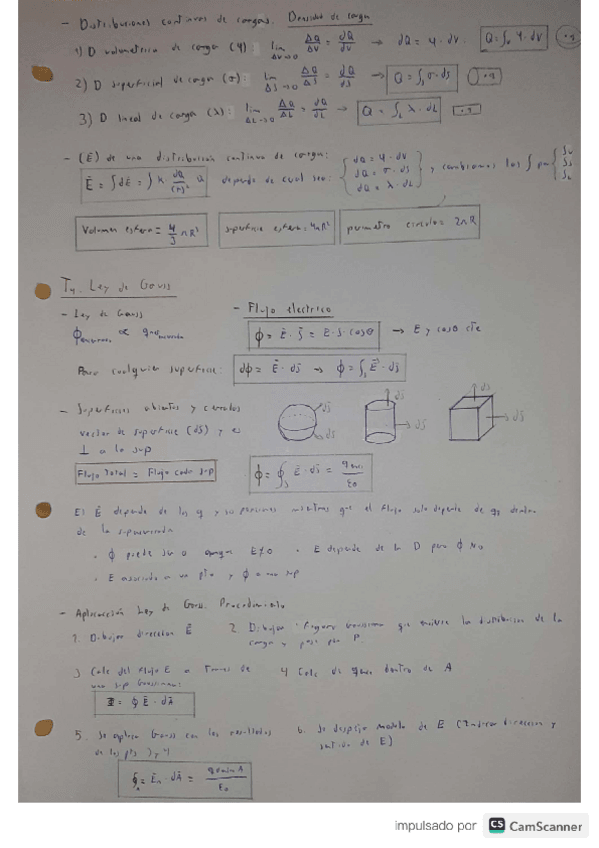 - Distribuciones continuas de cargas. Densidad de carga
1) D volumetrica de carga (φ): lim ΔV→0 ΔQ/ΔV = dQ/dV → dQ = φ · dV. Q = ∫v φ · dV
2) D superficial de carga (σ): lim ΔS→0 ΔQ/ΔS = dQ/dS → Q = ∫s σ · dS
3) D lineal de carga (λ): lim ΔL→0 ΔQ/ΔL = dQ/dL → Q = ∫L λ · dL
- (E) de una distribucion continua de carga:
E = ∫dE = ∫ K dQ/(r)² depende de cual sea: dQ = φ · dV dQ = σ · dS dQ = λ · dL y cambiamos los ∫ por ∫v ∫s ∫L
Volumen esfera = 4/3 π R³ superficie esfera = 4πR² perimetro circulo = 2πR
T4. Ley de Gauss
- Ley de Gauss - Flujo electrico
ϕ ∝ q ϕ = E · S = E · S · cosθ → E y cosθ cte
Para cualquier superficie: dϕ = E · dS → ϕ = ∫s E · dS
- Superficies abiertas y cerradas
vector de superficie (dS) y es
⊥ a la sup
dS dS dS dS dS dS
Flujo Total = Flujo cada sup ϕ = ∮s E · dS = q/ε0
El E depende de las q y sus posiciones mientras que el flujo solo depende de q dentro
de la
· ϕ puede ser 0 aunque E≠0 · E depende de la D pero ϕ no
· E asociado a un pto y ϕ a una sup
- Aplicación Ley de Gauss. Procedimiento
1. Dibujar direccion E 2. Dibujar Figura Gaussiana que envuelve la distribucion de la
carga y pase por P
3 Calc del flujo E a traves de 4 Calc de q dentro de A
una sup Gaussiana:
Φ = ∮ E · dA
5. Se aplica Gauss con los resultados 6. Se despeja modulo de E (Indicar direccion y
de los pts 3 y 4 sentido de E)
∮ E · dA = q A/ε0
impulsado por CS CamScanner